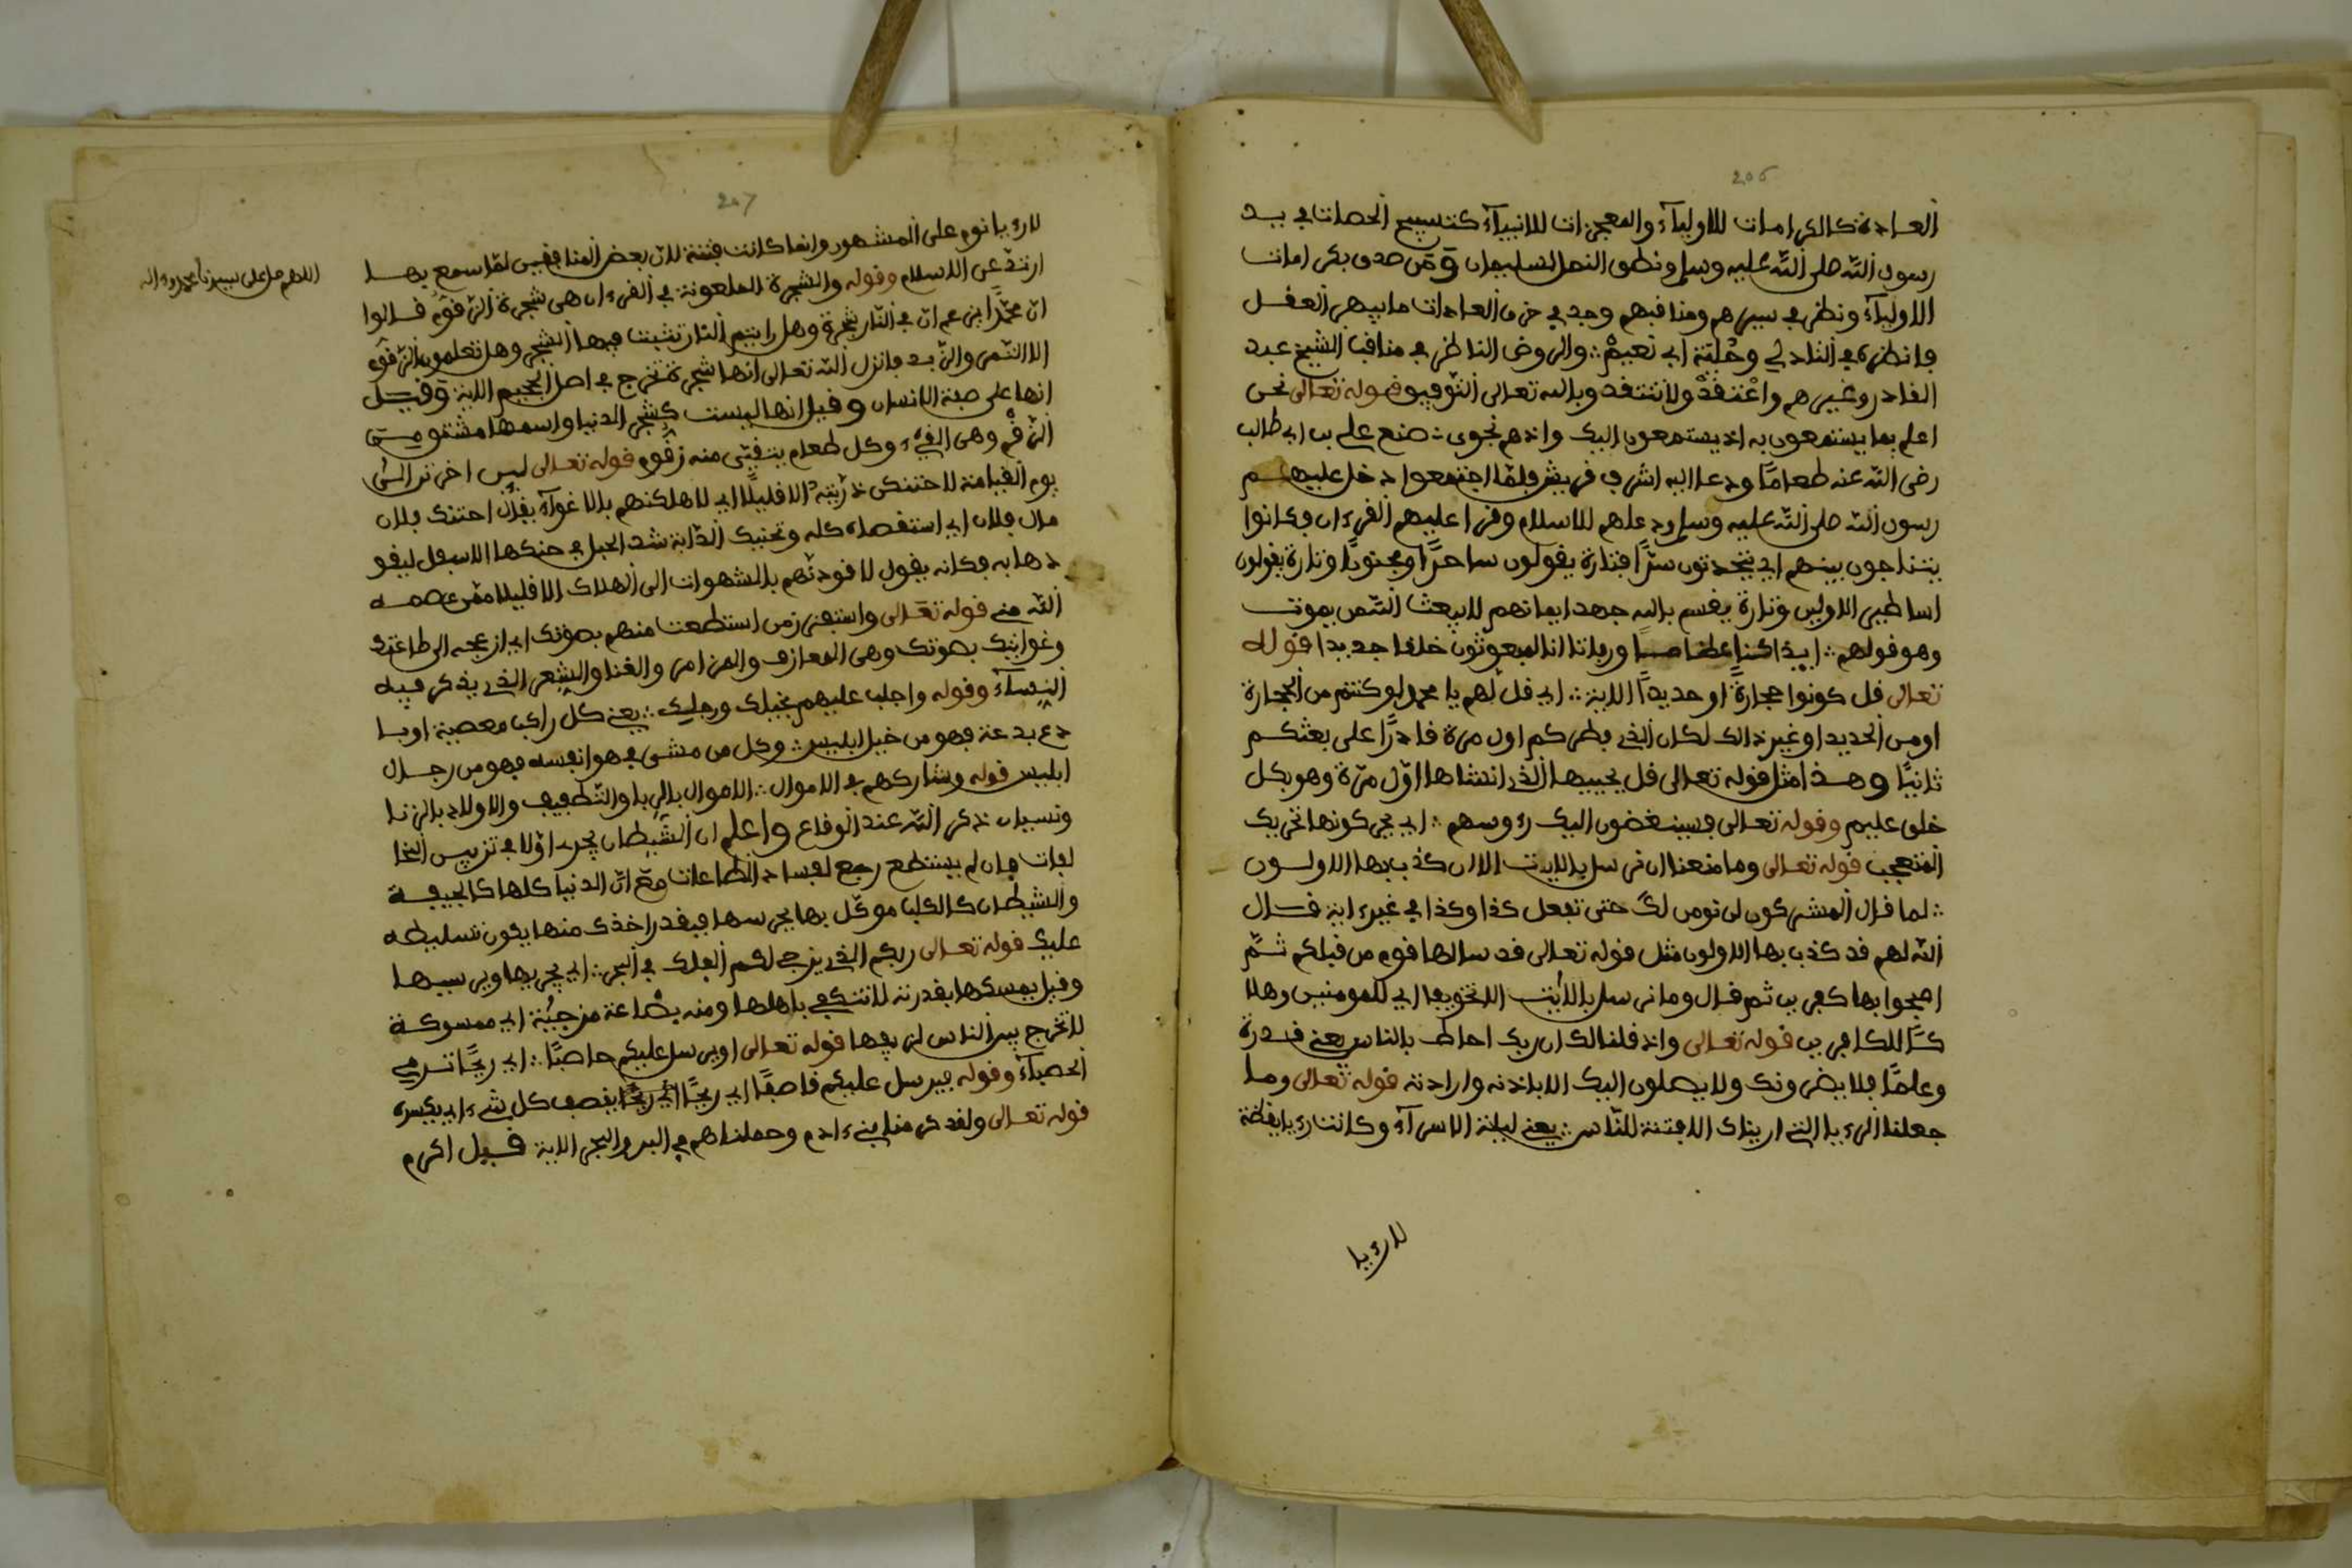 206
العادة كالكرامات للاولياء والمعجزات للانبياء كتسبيح الحصات في يد
رسول الله صلى الله عليه وسلم ونطق النمل لسليمان ومن صدق بكرامات
الاولياء ونظر في سيرهم ومناقبهم وجد في خرق العادات ما يبهر العقل
فانظره في الشادلي وحلية ابي نعيم والروض الناظر في مناقب الشيخ عبد
القادر وغيرهم واعتقد ولا تنتقد وبالله تعالى التوفيق قوله تعالى نحن
اعلم بما يستمعون به اذ يستمعون اليك واذ هم نجوى صنع علي بن ابي طالب
رضي الله عنه طعاما ودعا اليه اشراف قريش فلما اجتمعوا دخل عليهم
رسول الله صلى الله عليه وسلم ودعاهم للاسلام وقرا عليهم القرءان فكانوا
يتناجون بينهم اي يتحدثون سرا فتارة يقولون ساحرا ومجنونا وتارة يقولون
اساطير الاولين وتارة يقسم بالله جهد ايمانهم لا يبعث الله من يموت
وهو قولهم ايذا كنا عظاما ورفاتا انا لمبعوثون خلقا جديدا قوله
تعالى قل كونوا حجارة او حديدا الاية اي قل لهم يا محمد لو كنتم من الحجارة
او من الحديد او غير ذالك لكان الذي فطركم اول مرة قادرا على بعثكم
ثانيا وهذا مثل قوله تعالى قل يحييها الذي انشاها اول مرة وهو بكل
خلق عليم وقوله تعالى فسينغضون اليك رءوسهم اي يحركونها تحريك
المتعجب قوله تعالى وما منعنا ان نرسل بالايت الا ان كذب بها الاولون
لما قال المشركون لن نومن لك حتى تفعل كذا وكذا في غير ءاية قال
الله لهم قد كذب بها الاولون مثل قوله تعالى قد سالها قوم من قبلكم ثم
اصبحوا بها كفرين ثم قال وما نرسل بالايت الا تخويفا اي للمومنين وهلا
كا للكافرين قوله تعالى واذ قلنا لك ان ربك احاط بالناس يعني قدرة
وعلما فلا يضرونك ولا يصلون اليك الا باذنه وارادته قوله تعالى وما
جعلنا الرءيا التي اريناك الا فتنة للناس يعني ليلة الاسراء وكانت رءيا يقظة
لا رءيا
207
لا رءيا نوم على المشهور وانما كانت فتنة لان بعض المنافقين لما سمع بها
ارتد عن الاسلام وقوله والشجرة الملعونة في القرءان هي شجرة الزقوم قالوا
اللهم صل على سيدنا محمد وءاله
ان محمدا يزعم ان في النار شجرة وهل رايتم النار تنبت فيها الشجر وهل تعلمون الزقوم
الا التمر والزبد فانزل الله تعالى انها شجرة تخرج في اصل الجحيم الاية وقيل
انها على صفة الانسان وقيل انها ليست كشجر الدنيا واسمها مشتق من
الزقم وهي القيء وكل طعام يتقيى منه زقوم قوله تعالى لين اخرتن الى
يوم القيامة لاحتنكن ذريته الا قليلا اي لاهلكنهم بالاغواء يقال احتنك فلان
مال فلان اي استقصاه كله وتحنيك الدابة شد الحبل في حنكها الاسفل ليقو
دها به فكانه يقول لاقودنهم بالشهوات الى الهلاك الا قليلا ممن عصمه
الله مني قوله تعالى واستفزز من استطعت منهم بصوتك اي ازعجه الى طاعتك
وغوايتك بصوتك وهي المعازف والمزامر والغنا والشعر الذي يذكر فيه
النساء وقوله واجلب عليهم بخيلك ورجلك يعني كل راكب معصية او با
دع بدعة فهو من خيل ابليس وكل من مشى في هوا نفسه فهو من رجال
ابليس قوله وشاركهم في الاموال الاموال بالربا والتطفيف والاولاد بالزنا
ونسيان ذكر الله عند الوقاع واعلم ان الشيطان يجري اولا في تزيين المخا
لفات فان لم يستطع رجع لفساد الطاعات مع ان الدنيا كلها كالجيفة
والشيطان كالكلب موكل بها يحرسها فبقدر اخذك منها يكون تسليطه
عليك قوله تعالى ربكم الذي يزجي لكم الفلك في البحر اي يجريها ويسيرها
وقيل يمسكها بقدرته لا تنكفي باهلها ومنه بضاعة مزجية اي ممسوكة
لا تخرج بين الناس لزيفها قوله تعالى او يرسل عليكم حاصبا اي ريحا ترمي
الحصباء وقوله فيرسل عليكم قاصفا اي ريحا يقصف كل شيء اي يكسره
قوله تعالى ولقد كرمنا بني ءادم وحملناهم في البر والبحر الاية قيل اكرم